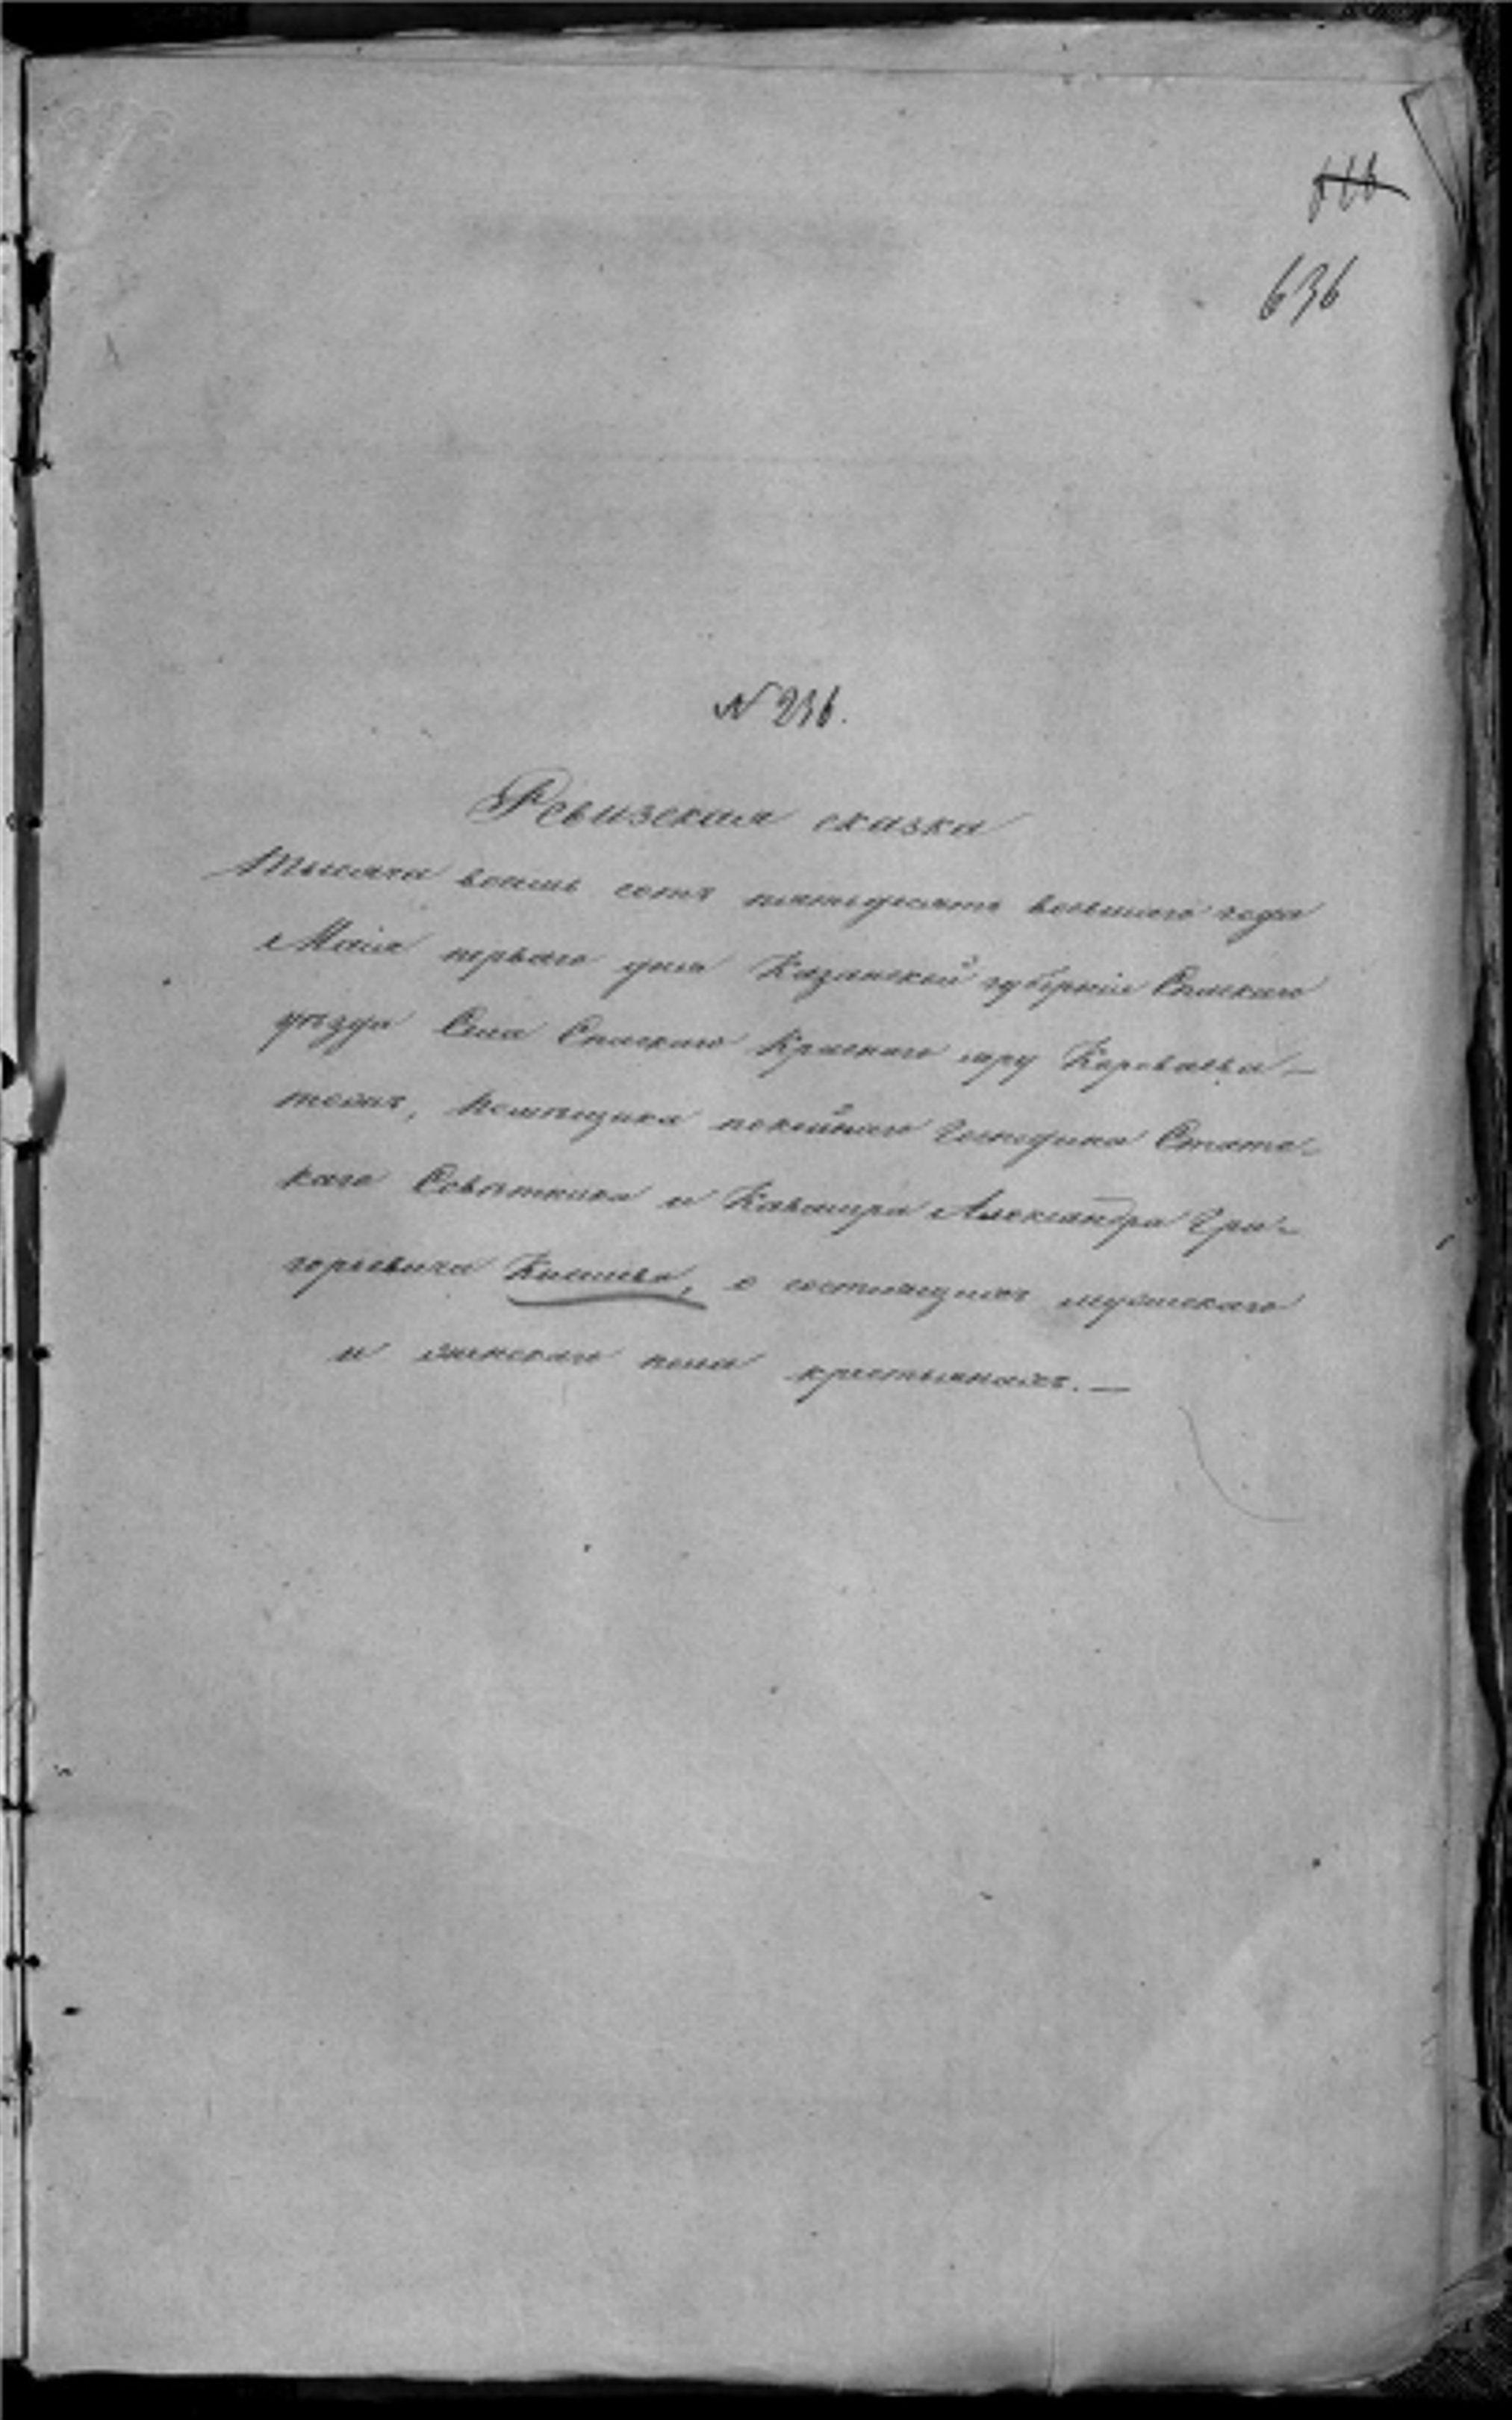 636
№ 236.
Ревизская сказка
Тысяча восемь сотъ пятьдесятъ восьмаго года
Маія перваго дня Казанской губерніи Спаскаго
уѣзда Села Спаскаго Краснаго яру
тожъ, помѣщика покойнаго Господина Статс-
каго Совѣтника и Кавалера Александра Гри-
горьевича о состоящихъ мужескаго
и женскаго пола крестьянахъ.—